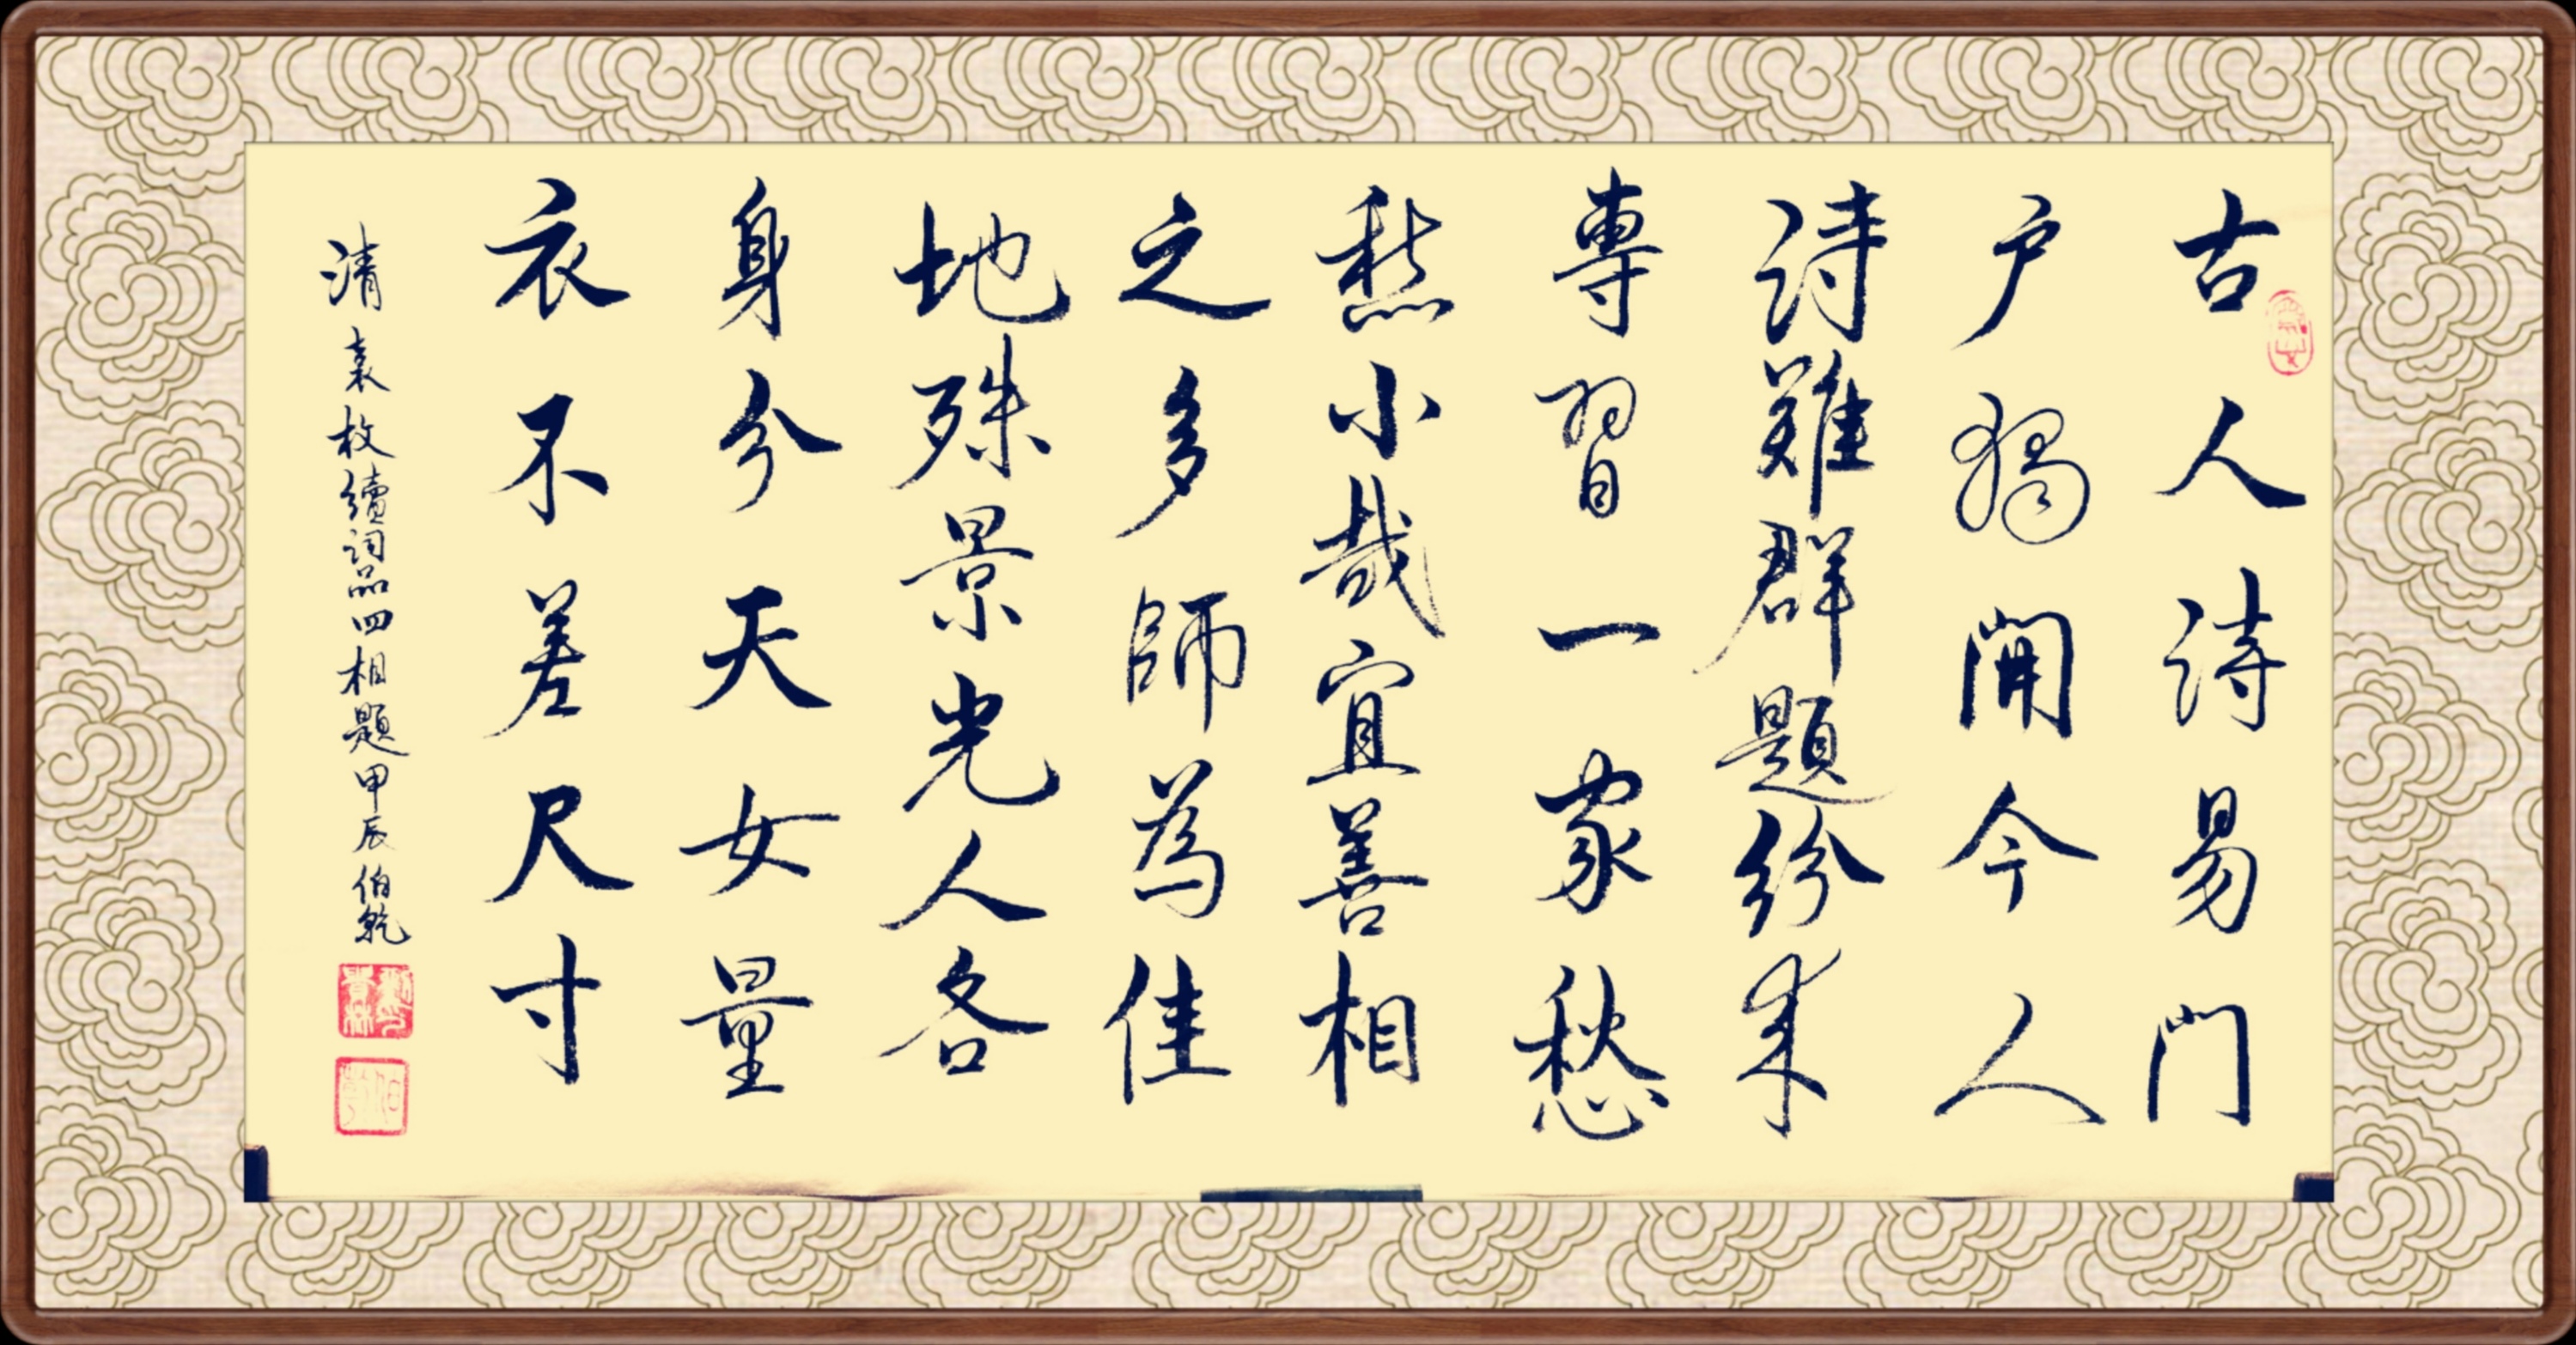 古人詩易門
户獨開今人
詩難群題紛来
專習一家愁
愁小哉宜善相
之多師為佳
地殊景光人各
身分天女量
衣不差尺寸
清袁枚續詞品四相題甲辰伯乾